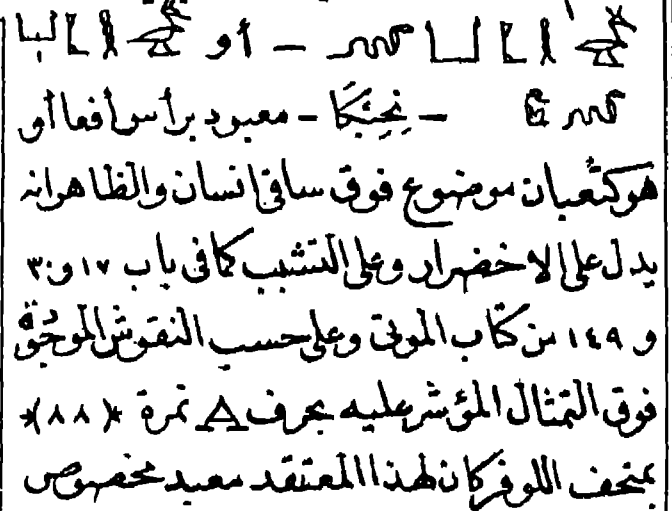 – أو
– نِحِبْكَا – معبود برأس أفعا أو
هو كثعبان موضوع فوق ساقى انسان والظاهر انه
يدل على الاخضرار وعلى التشبب كما فى باب ١٧ و٣٠
و ١٤٩ من كتاب الموتى وعلى حسب النقوش الموجودة
فوق التمثال المؤشر عليه بحرف A نمرة *(٨٨)*
بمتحف اللوفر كان لهذا المعتقد معبد مخصوص